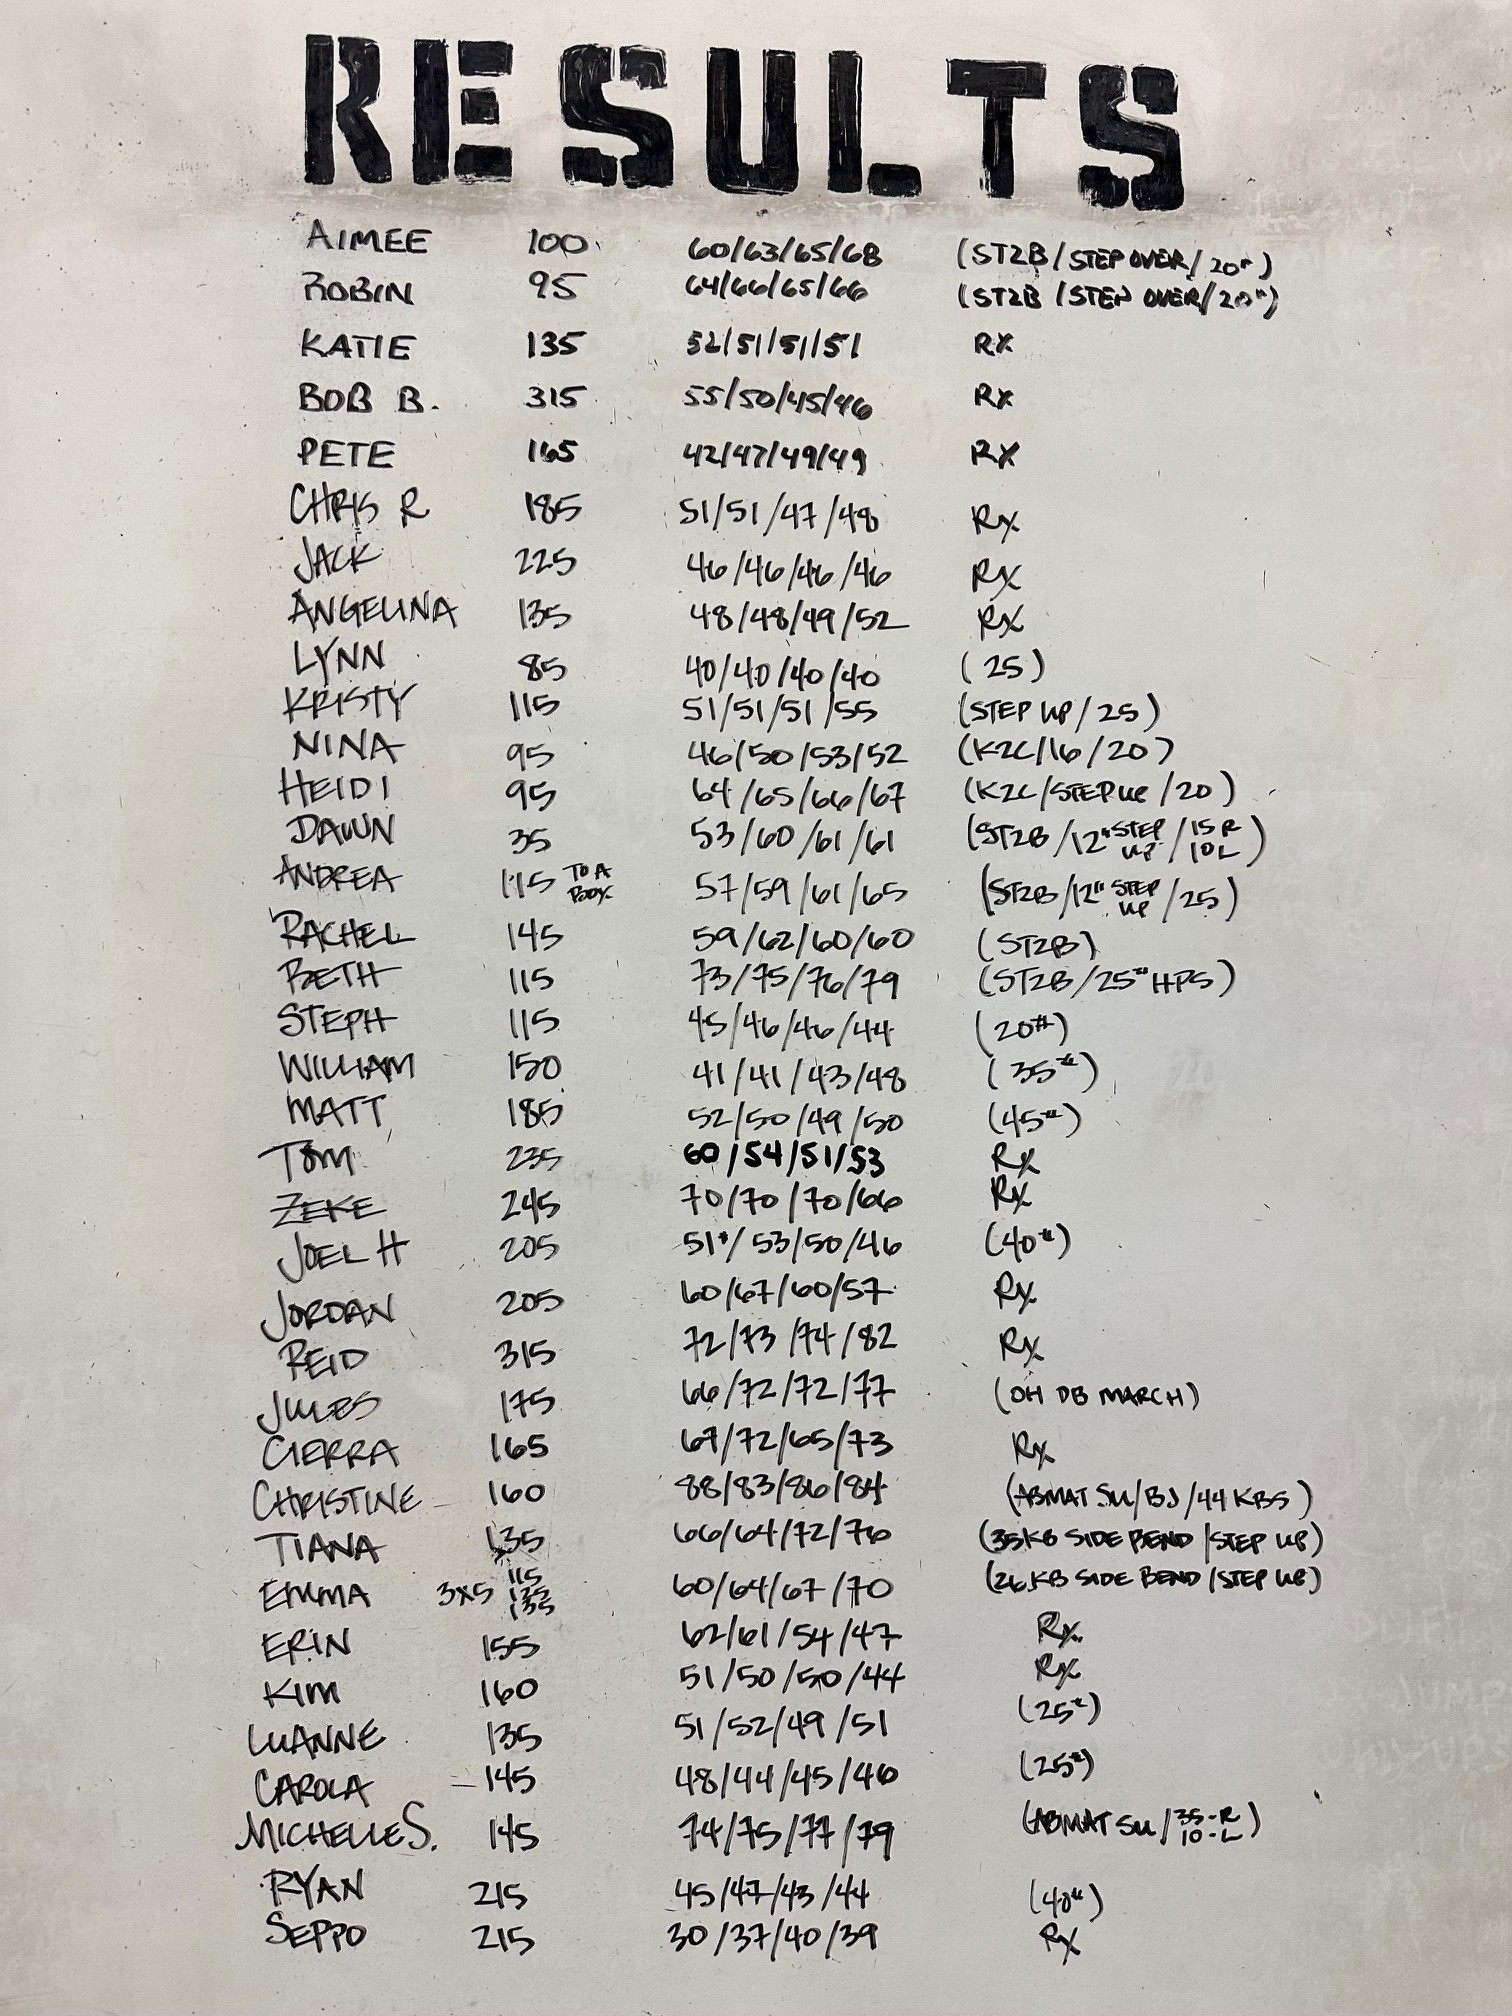 RESULTS
AIMEE 100 60/63/65/68 (ST2B/STEP OVER/20")
ROBIN 95 64/66/65/66 (ST2B/STEP OVER/20")
KATIE 135 52/51/51/51 RX
BOB B. 315 55/50/45/46 RX
PETE 165 42/47/49/49 RX
CHRIS R 185 51/51/47/48 RX
JACK 225 46/46/46/46 RX
ANGELINA 135 48/48/49/52 RX
LYNN 85 40/40/40/40 (25)
KRISTY 115 51/51/51/55 (STEP UP/25)
NINA 95 46/50/53/52 (K2C/16/20)
HEIDI 95 64/65/66/67 (K2C/STEP UP/20)
DAWN 35 53/60/61/61 (ST2B/12" STEP UP/15 R 10 L)
ANDREA 115 TO A BOX 57/59/61/65 (ST2B/12" STEP UP/25)
RACHEL 145 59/62/60/60 (ST2B)
BETH 115 73/75/76/79 (ST2B/25# HPS)
STEPH 115 45/46/46/44 (20#)
WILLIAM 150 41/41/43/48 (35#)
MATT 185 52/50/49/50 (45#)
TOM 235 60/54/51/53 RX
ZEKE 245 70/70/70/66 RX
JOEL H 205 51*/53/50/46 (40#)
JORDAN 205 60/67/60/57 RX
REID 315 72/73/74/82 RX
JULES 175 66/72/72/77 (OH DB MARCH)
CIERRA 165 67/72/65/73 RX
CHRISTINE 160 88/83/86/84 (ABMAT SU/BJ/44 KBS)
TIANA 135 66/64/72/76 (35KB SIDE BEND/STEP UP)
EMMA 3X5 115 125 135 60/64/67/70 (26KB SIDE BEND/STEP UP)
ERIN 155 62/61/54/47 RX
KIM 160 51/50/50/44 RX
LUANNE 135 51/52/49/51 (25#)
CAROLA 145 48/44/45/46 (25#)
MICHELLE S. 145 74/75/77/79 (ABMAT SU/35-R 10-L)
RYAN 215 45/47/43/44 (40#)
SEPPO 215 30/37/40/39 RX